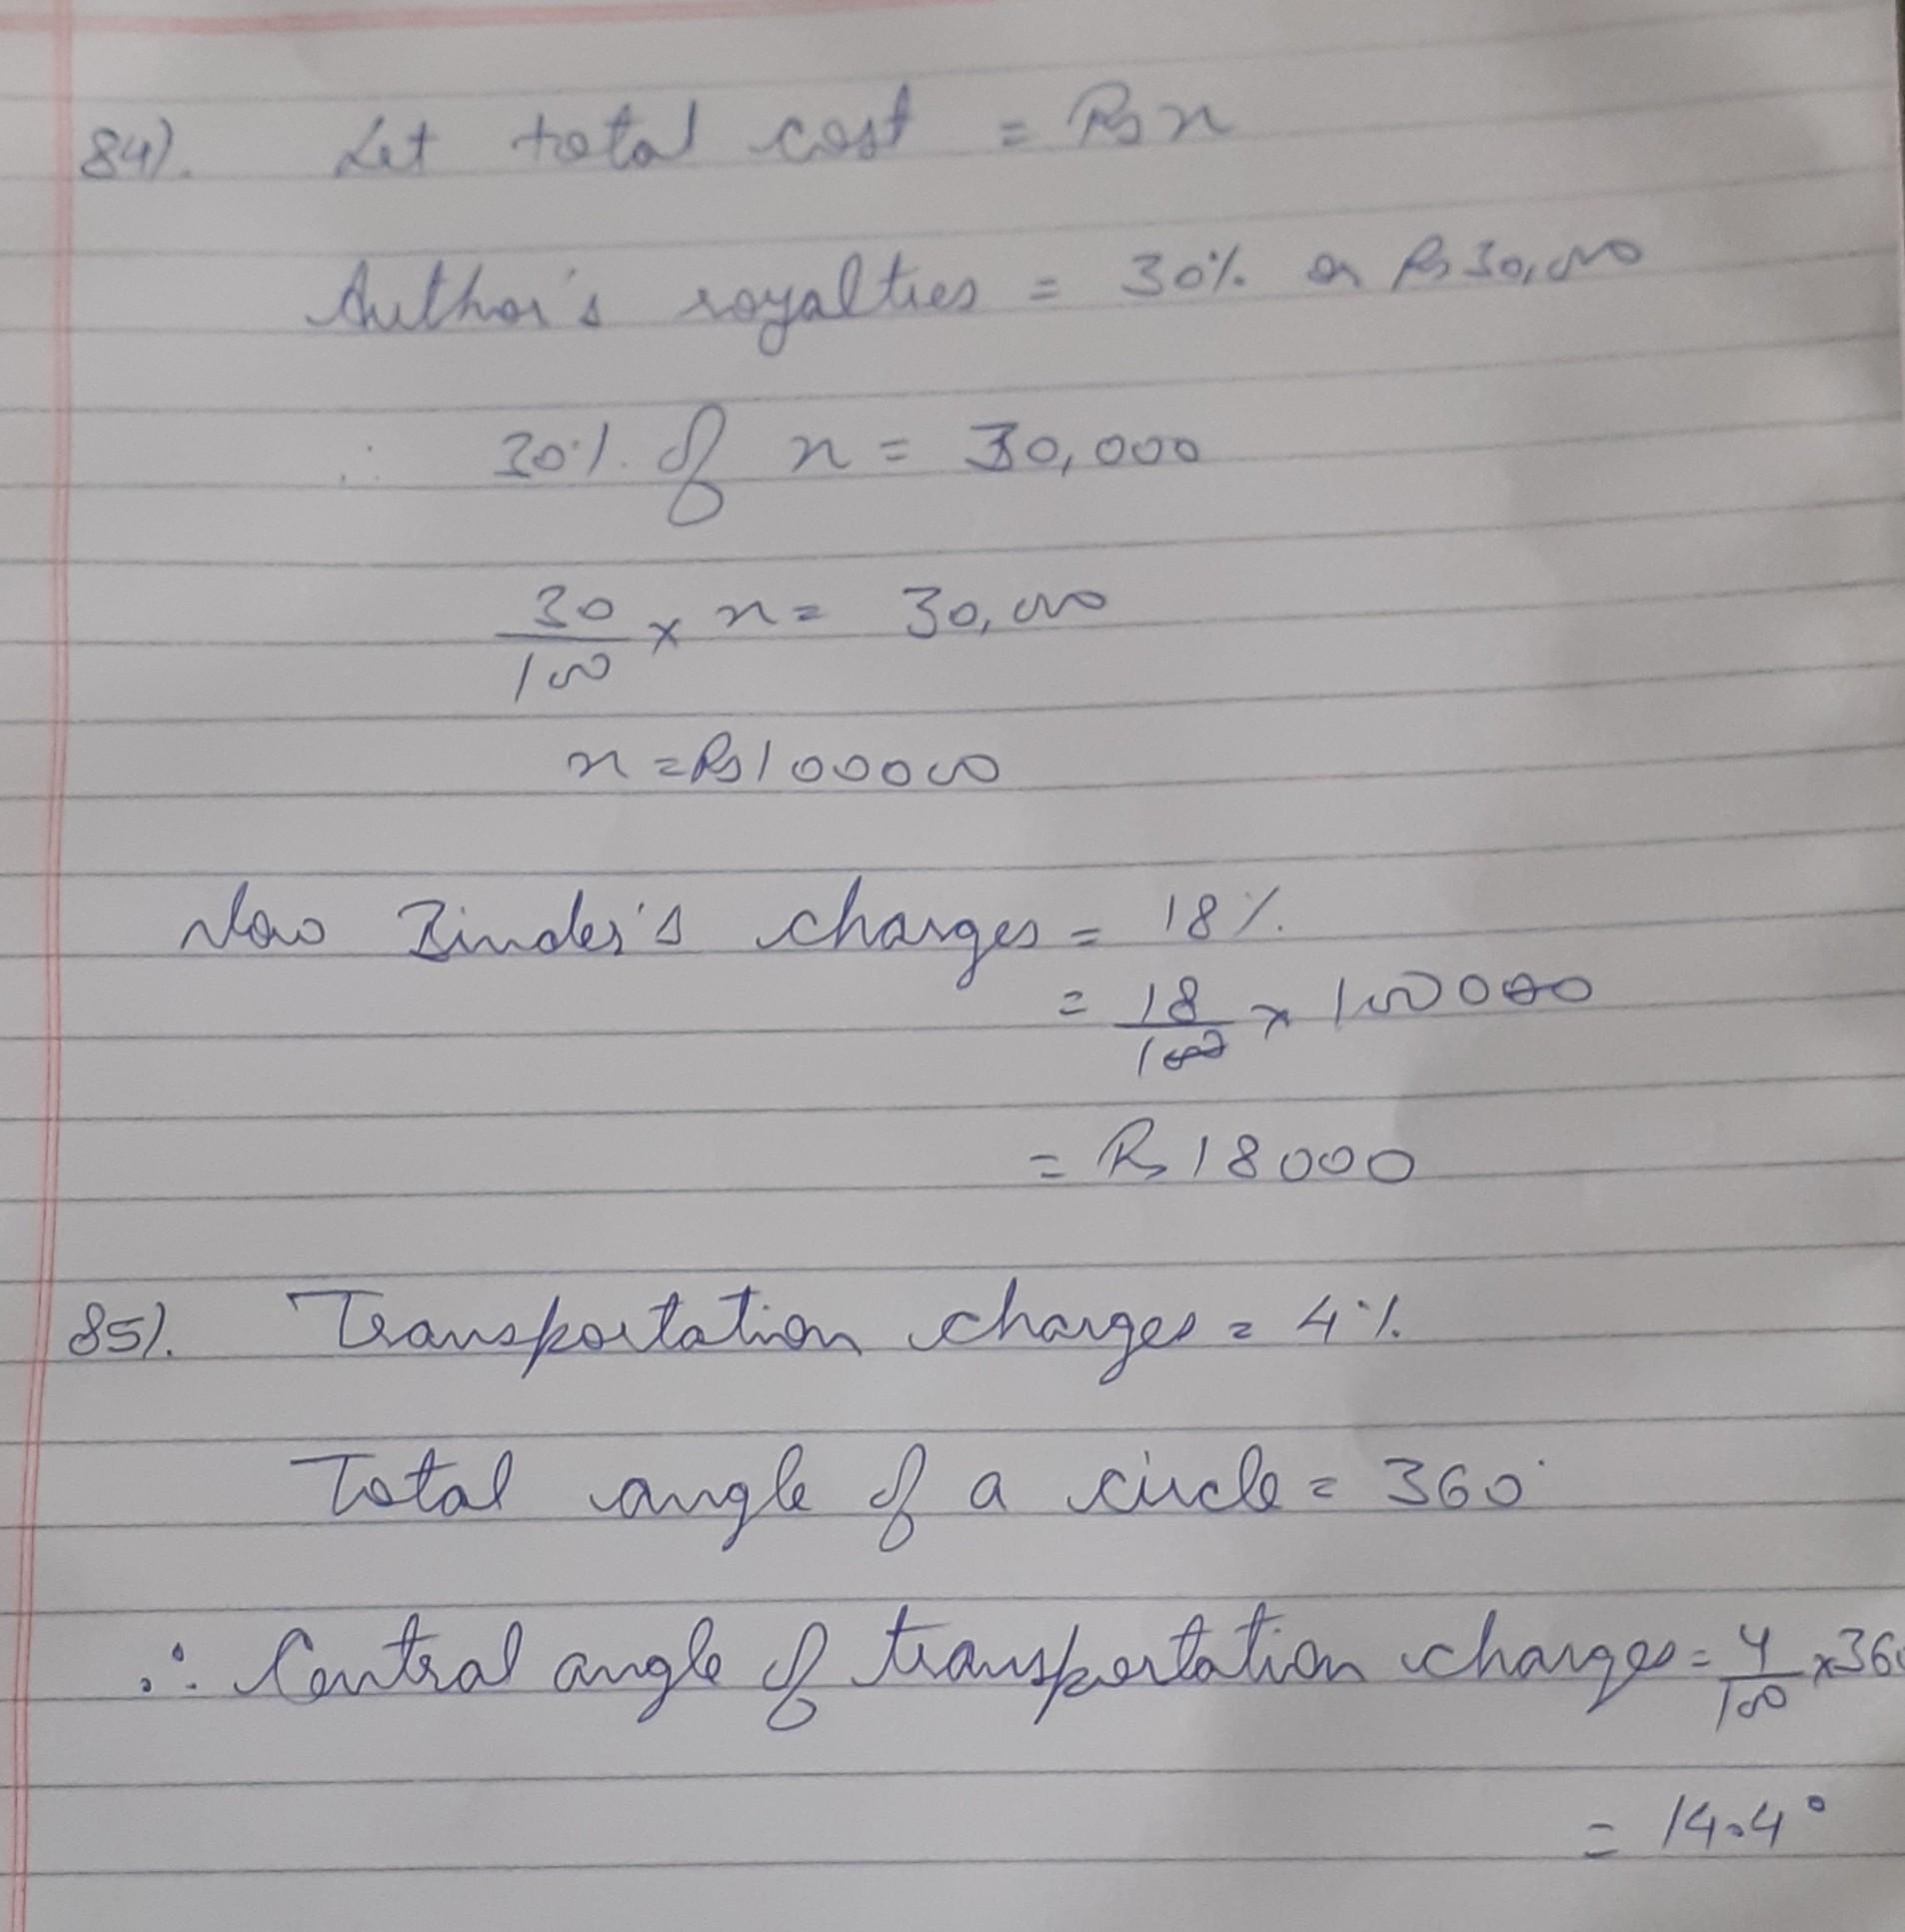 84). Let total cost = Rs x
Author's royalties = 30% or Rs 30,000
∴ 30% of x = 30,000
30/100 × x = 30,000
x = Rs 100000
Now Binder's charges = 18%
= 18/100 × 100000
= Rs 18000
85). Transportation charges = 4%
Total angle of a circle = 360°
∴ Central angle of transportation charges = 4/100 × 360
= 14.4°